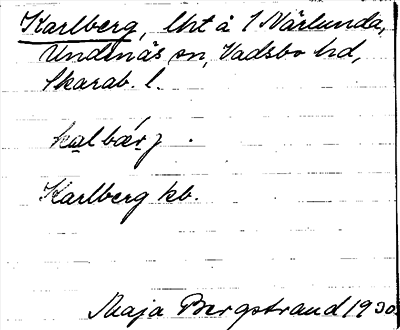 Karlberg, lht å 1 Närlunda,
Undenäs sn, Vadsbo hd,
Skarab. l.
kalbærj.
Karlberg kb.
Maja Bergstrand 1930